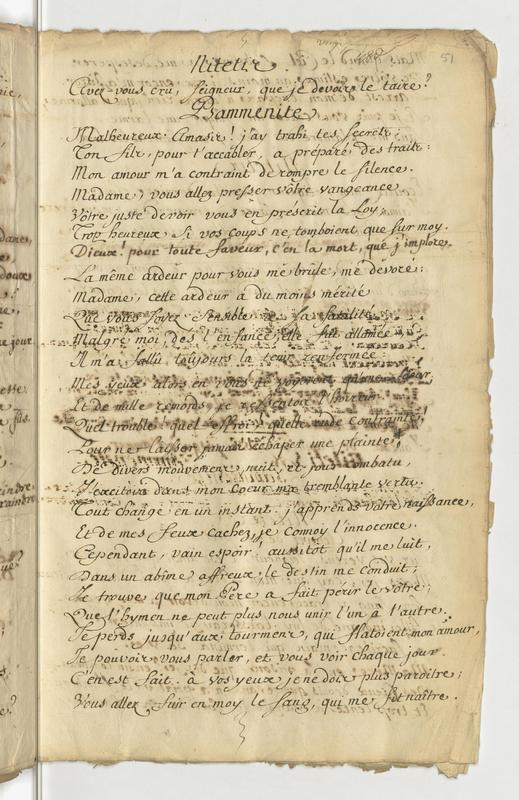 51
Nitetis
Avez-vous cru, Seigneur, que je devois le taire?
Psammenite,
Malheureux Amasis! j'ay trahi tes secrets;
Ton fils, pour t'accabler, a préparé des traits:
Mon amour m'a contraint de rompre le silence.
Madame, vous allez presser vôtre vangeance
Vôtre juste devoir vous en prescrit la Loy,
Trop heureux si vos coups ne tomboient que sur moy.
Dieux! pour toute faveur, c'en la mort, que j'implore.
La même ardeur pour vous me brûle, me dévore:
Madame, cette ardeur a du moins mérité
Que vous soyez sensible à sa fatalité
Malgré moi, dès l'enfance, elle fut allumée
Il m'a fallu toûjours la tenir renfermée
Mes yeux alors en vous ne voyoient qu'une Sœur
Et de mille remords je ressentois l'horreur
Quel trouble! quel effroi! quelle rude contrainte!
Pour ne laisser jamais échaper une plainte,
De divers mouvemens, nuit, et jour combatu,
J'excitois dans mon Coeur ma tremblante vertu.
Tout change en un instant: j'apprends vôtre naissance,
Et de mes feux cachez, je connoy l'innocence.
Cependant, vain espoir! aussitôt qu'il me luit,
Dans un abîme affreux, le destin me conduit;
Je trouve que mon Père a fait périr le vôtre;
Que l'hymen ne peut plus nous unir l'un à l'autre.
Je perds jusqu'aux tourmens, qui flatoient mon amour,
Je pouvois vous parler, et vous voir chaque jour
C'en est fait. à vos yeux je ne dois plus paroître;
Vous allez fuir en moy le sang, qui me fit naître.